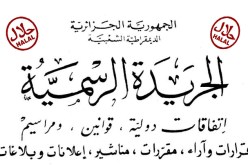 الجمهورية الجزائرية
الديمقراطية الشعبية
حلال
HALAL
حلال
HALAL
الجريدة الرسمية
إتفاقات دولية ، قوانين ، ومراسيم
قرارات وآراء ، مقررات ، مناشير ، إعلانات وبلاغات